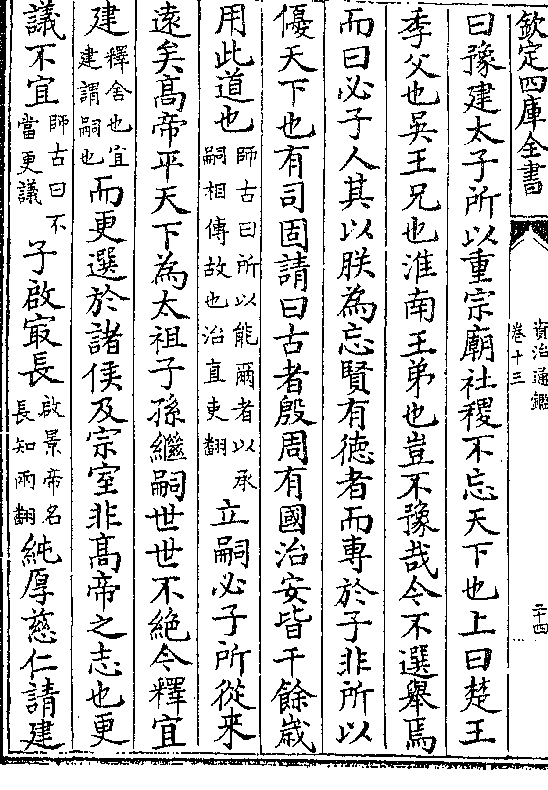 欽定四庫全書
資治通鑑
卷十三
二十四
曰豫建太子所以重宗廟社稷不忘天下也上曰楚王
季父也吳王兄也淮南王弟也豈不豫哉今不選舉焉
而曰必子人其以朕為忘賢有徳者而專於子非所以
優天下也有司固請曰古者殷周有國治安皆千餘歳
用此道也師古曰所以能爾者以承嗣相傳故也治直吏翻立嗣必子所從来
逺矣髙帝平天下為太祖子孫繼嗣世世不絶今釋宜
建釋舍也宜建謂嗣也而更選於諸侯及宗室非髙帝之志也更
議不宜師古曰不當更議子啟㝡長啟景帝名長知兩翻純厚慈仁請建